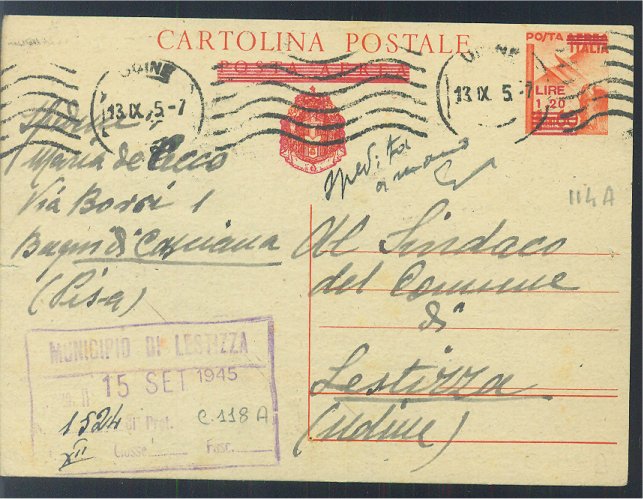 CARTOLINA POSTALE
POSTA AEREA
POSTA AEREA
ITALIA
LIRE
1,20
UDINE
13.IX.45-7
UDINE
13.IX.45-7
Spedita
a mano
114A
Maria de Cecco
Via Borsi 1
Bagni di Casciana
(Pisa)
Al Sindaco
del Comune
di
Lestizza
(Udine)
MUNICIPIO DI LESTIZZA
15 SET 1945
1524 di Prot. C.118A
XII Classe Fasc.